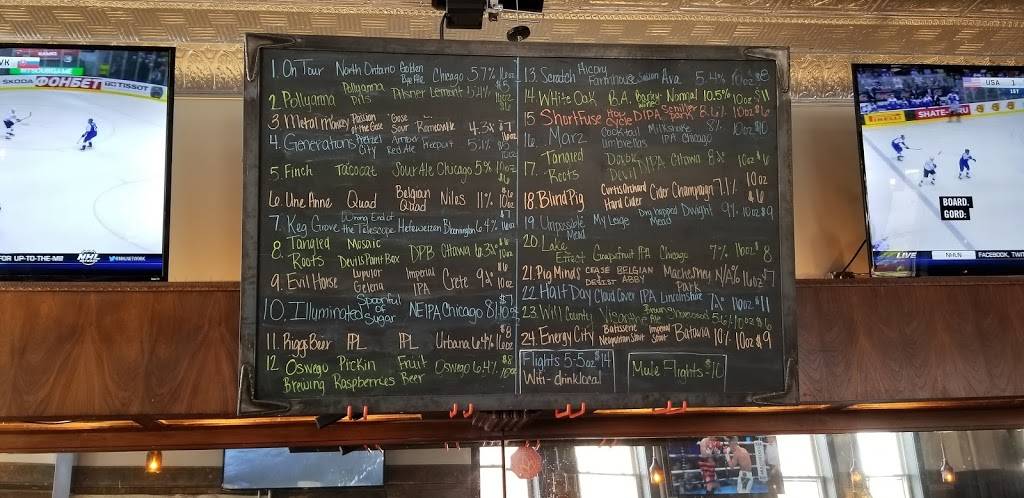 1. Oh Tour North Ontario Golden Bye Ale Chicago 5.7% 16oz $5
2. Pollyanna Pollyanna Pils Pilsner Lemont 5.4%
3. Metal Monkey Passion of the Gose Gose Sour Romeoville 4.3% $7
4. Generations Pretzel City Amber Red Ale Freeport 5.1%
5. Finch Tacocat Sour Ale Chicago 5%
6. Une Anne Quad Belgian Quad Niles 11% 10oz
7. Keg Grove Wrong End of the Telescope Hefeweizen Bloomington 6.4% $7
8. Tangled Roots Mosaic Devils Paint Box DPB Ottawa 6.3%
9. Evil Horse Lupulor Gelena Imperial IPA Crete 9% 10oz
10. Illuminated Spoonful of Sugar NEIPA Chicago 8% $7 10oz
11. Riggs Beer IPL IPL Urbana 6.4% $8 16oz
12 Oswego Brewing Pickin Raspberries Fruit Beer Oswego 6.4% $8
13. Scratch Hickory Farmhouse Saison Ava 5.4% 10oz $8
14. White Oak B.A. Barley Wine Normal 10.5% 10oz $11
15. ShortFuse Free Cycle DIPA Schiller Park 8.6% 10oz
16. Marz Cocktail Umbrellas Milkshake IPA Chicago 8% 10oz $10
17. Tangled Roots Double Devil DIPA Ottawa 8% 10oz $6
18 Blind Pig Curtis Orchard Hard Cider Cider Champaign 7.1% 10oz $6
19. Unpossible Mead My Leige Dry hopped Mead Dwight 9% 10oz $9
20 Lake Effect Grapefruit IPA Chicago 7% 16oz $8
21. Pig Minds CEASE DESIST BELGIAN ABBY Machesney Park N/A% 16oz $7
22. Half Day Cloud Cover IPA Lincolnshire 7% 16oz $11
23. Will County Brown Ale Shorewood 5.6% 10oz $6
24. Energy City Batisserie Neapolitan Stout Imperial Stout Batavia 10% 10oz $9
Flights 5-5oz $14
Wifi - drinklocal
Mule Flights $10
SKODA
ФОНБЕТ
TISSOT
FOR UP-TO-THE-MI
NHL
USA 1
1ST
PIRELLI
SKATE-PRO
BOARD.
GORD:
LIVE
NHLN
FACEBOOK, TWIT